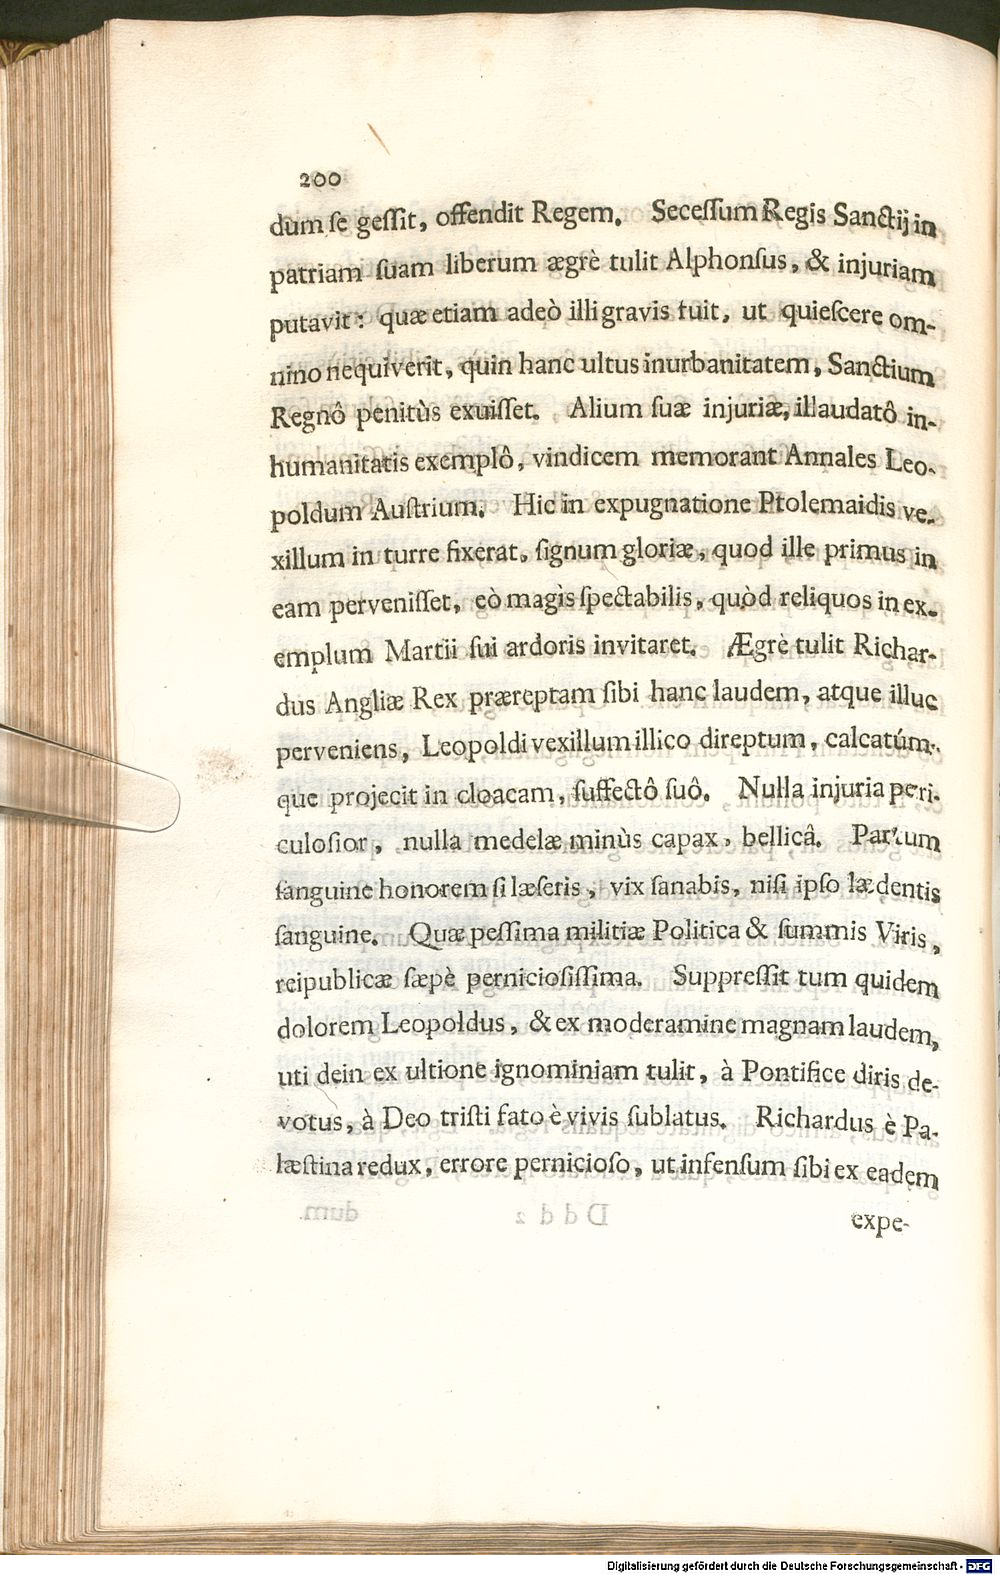 200
dum se gessit, offendit Regem. Secessum Regis Sanctij in
patriam suam liberum ægrè tulit Alphonsus, & injuriam
putavit: quæ etiam adeò illi gravis fuit, ut quiescere om-
nino nequiverit, quin hanc ultus inurbanitatem, Sanctium
Regnô penitùs exuisset. Alium suæ injuriæ, illaudatô in-
humanitatis exemplô, vindicem memorant Annales Leo-
poldum Austrium. Hic in expugnatione Ptolemaidis ve-
xillum in turre fixerat, signum gloriæ, quod ille primus in
eam pervenisset, eò magìs spectabilis, quòd reliquos in ex-
emplum Martii sui ardoris invitaret. Ægrè tulit Richar-
dus Angliæ Rex præreptam sibi hanc laudem, atque illuc
perveniens, Leopoldi vexillum illico direptum, calcatúm-
que projecit in cloacam, suffectô suô. Nulla injuria peri-
culosior, nulla medelæ minùs capax, bellicâ. Partum
sanguine honorem si læseris, vix sanabis, nisi ipso lædentis
sanguine. Quæ pessima militiæ Politica & summis Viris,
reipublicæ sæpè perniciosissima. Suppressit tum quidem
dolorem Leopoldus, & ex moderamine magnam laudem,
uti dein ex ultione ignominiam tulit, à Pontifice diris de-
votus, à Deo tristi fato è vivis sublatus. Richardus è Pa-
læstina redux, errore pernicioso, ut infensum sibi ex eadem
expe-
Digitalisierung gefördert durch die Deutsche Forschungsgemeinschaft - DFG